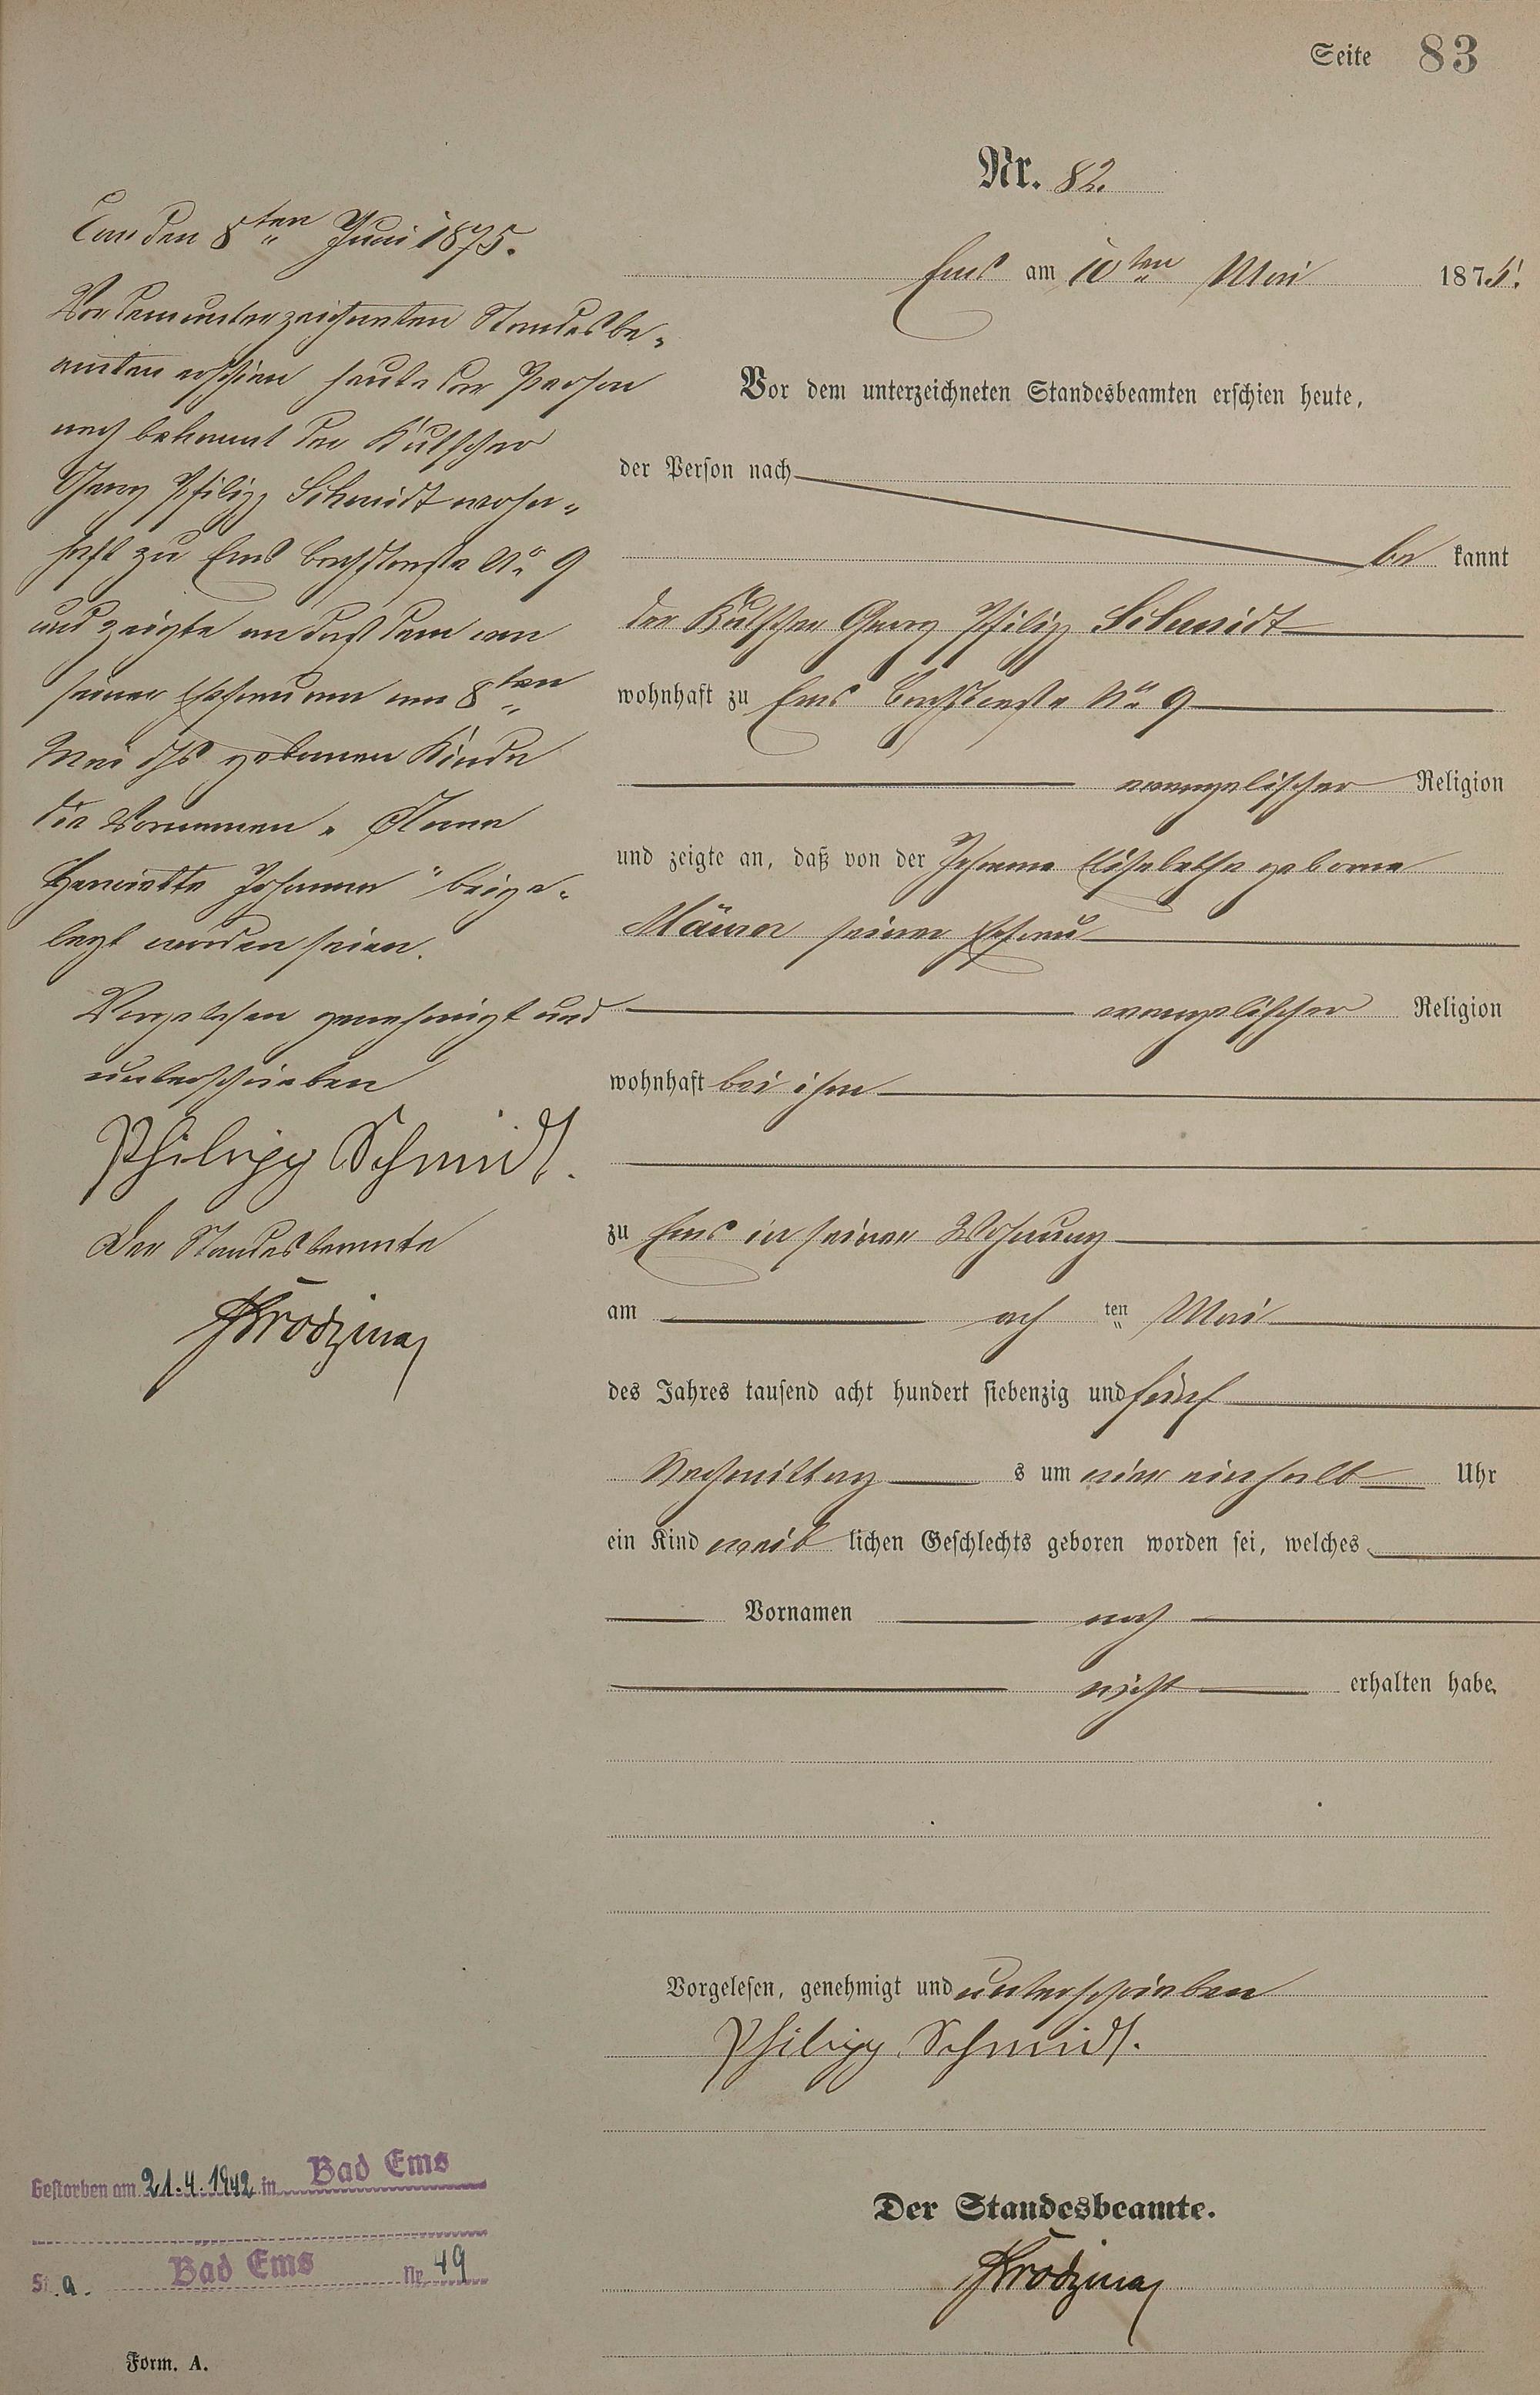 Seite 83
Nr. 82.
Ems am 10ten Mai 1875.
Vor dem unterzeichneten Standesbeamten erschien heute,
der Person nach
bekannt
der Kutscher Georg Philipp Schmidt
wohnhaft zu Ems Bachstraße No 9
evangelischer Religion
und zeigte an, daß von der Johanna Elisabetha geborne
Mäurer seiner Ehefrau
evangelischer Religion
wohnhaft bei ihm
zu Ems in seiner Wohnung
am achten Mai
des Jahres tausend acht hundert siebenzig und fünf
Nachmittags um ein halb Uhr
ein Kind weiblichen Geschlechts geboren worden sei, welches
Vornamen noch
nicht erhalten habe.
Vorgelesen, genehmigt und unterschrieben
Philipp Schmidt.
Der Standesbeamte.
Ems den 8ten Juni 1875.
Vor dem unterzeichneten Standesbe-
amten erschien heute der Person
nach bekannt der Kutscher
Georg Philipp Schmidt wohn-
haft zu Ems Bachstraße No 9
und zeigte an daß dem von
seiner Ehefrau am 8ten
Mai ds Js gebornen Kinde
die Vornamen „Anna
Henriette Johanna" beige-
legt worden seien.
Vorgelesen genehmigt und
unterschrieben
Philipp Schmidt.
Der Standesbeamte
Gestorben am 21.4.1942 in Bad Ems
St. a. Bad Ems Nr. 49
Form. A.